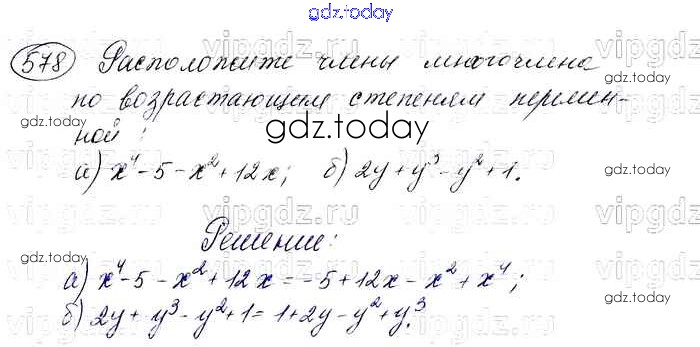 gdz.today
578 Расположите члены многочлена
по возрастающим степеням перемен-
ной:
gdz.today
а) x⁴-5-x²+12x; б) 2y+y³-y²+1.
Решение:
а) x⁴-5-x²+12x=-5+12x-x²+x⁴;
б) 2y+y³-y²+1=1+2y-y²+y³.
vipgdz.ru
gdz.today